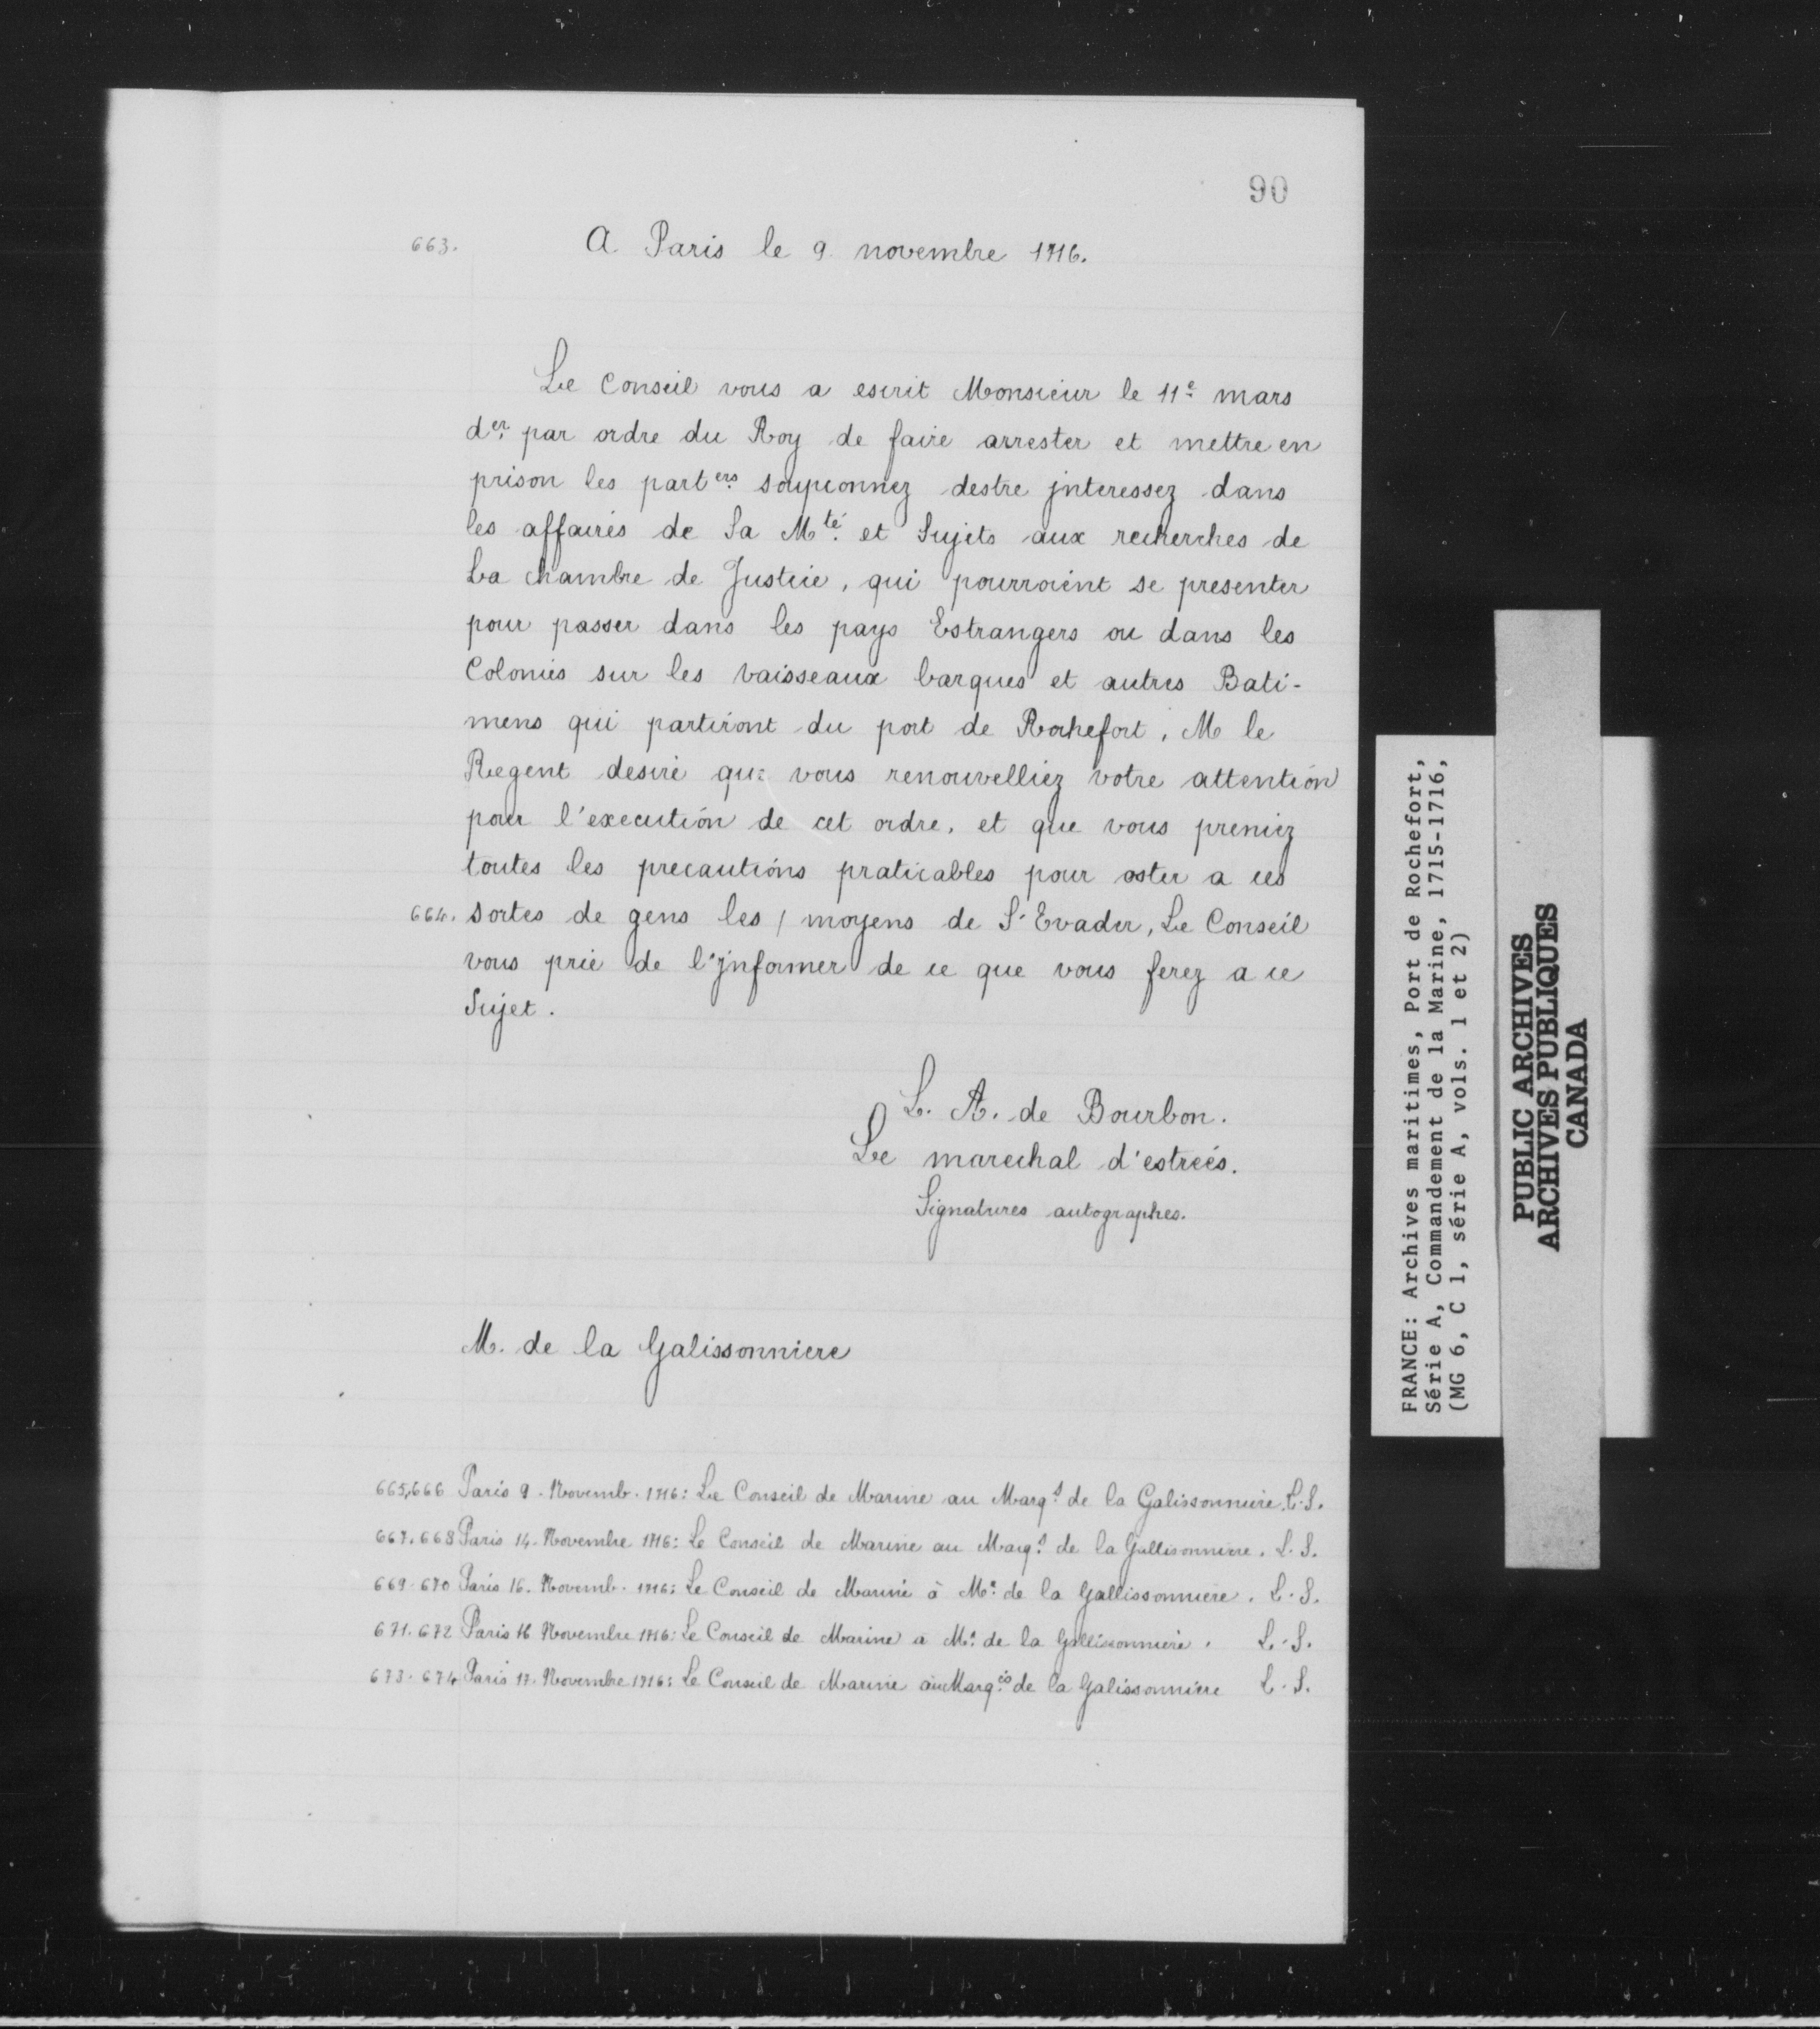 90
663. A Paris le 9 novembre 1716.
Le Conseil vous a escrit Monsieur le 11e mars
der par ordre du Roy de faire arrester et mettre en
prison les parters soupçonnez destre jnteressez dans
les affaires de Sa Mté et Sujets aux recherches de
La chambre de Justice, qui pourroient se presenter
pour passer dans les pays Estrangers ou dans les
Colonies sur les vaisseaux barques et autres Bati-
mens qui partiront du port de Rochefort, M le
Regent desire que vous renouvelliez votre attention
pour l'execution de cet ordre, et que vous preniez
toutes les precautions praticables pour oster a ces
664. sortes de gens les / moyens de S'Evader, Le Conseil
vous prie de l'jnformer de ce que vous ferez a ce
Sujet.
L. A. de Bourbon.
Le marechal d'estrées.
Signatures autographes.
M. de la Galissonniere
665,666 Paris 9. Novemb. 1716: Le Conseil de Marine au Marqs de la Galissonniere. L.S.
667.668 Paris 14. Novembre 1716: Le Conseil de Marine au Marqs de la Gallisonniere. L.S.
669.670 Paris 16. Novemb. 1716: Le Conseil de Marine à Mr de la Gallissonniere. L.S.
671.672 Paris 16 Novembre 1716: Le Conseil de Marine a Mr de la Gallissonniere. L.S.
673.674 Paris 17. Novembre 1716: Le Conseil de Marine au Marqis de la Galissonniere L.S.
FRANCE: Archives maritimes, Port de Rochefort,
Série A, Commandement de la Marine, 1715-1716,
(MG 6, C 1, série A, vols. 1 et 2)
PUBLIC ARCHIVES
ARCHIVES PUBLIQUES
CANADA